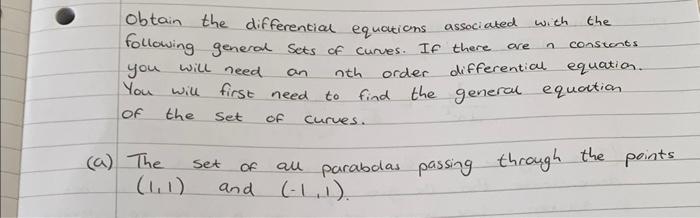 Obtain the differential equations associated with the
following general sets of curves. If there are n constants
you will need an nth order differential equation.
You will first need to find the general equation
of the set of curves.
(a) The set of all parabolas passing through the points
(1,1) and (-1,1).